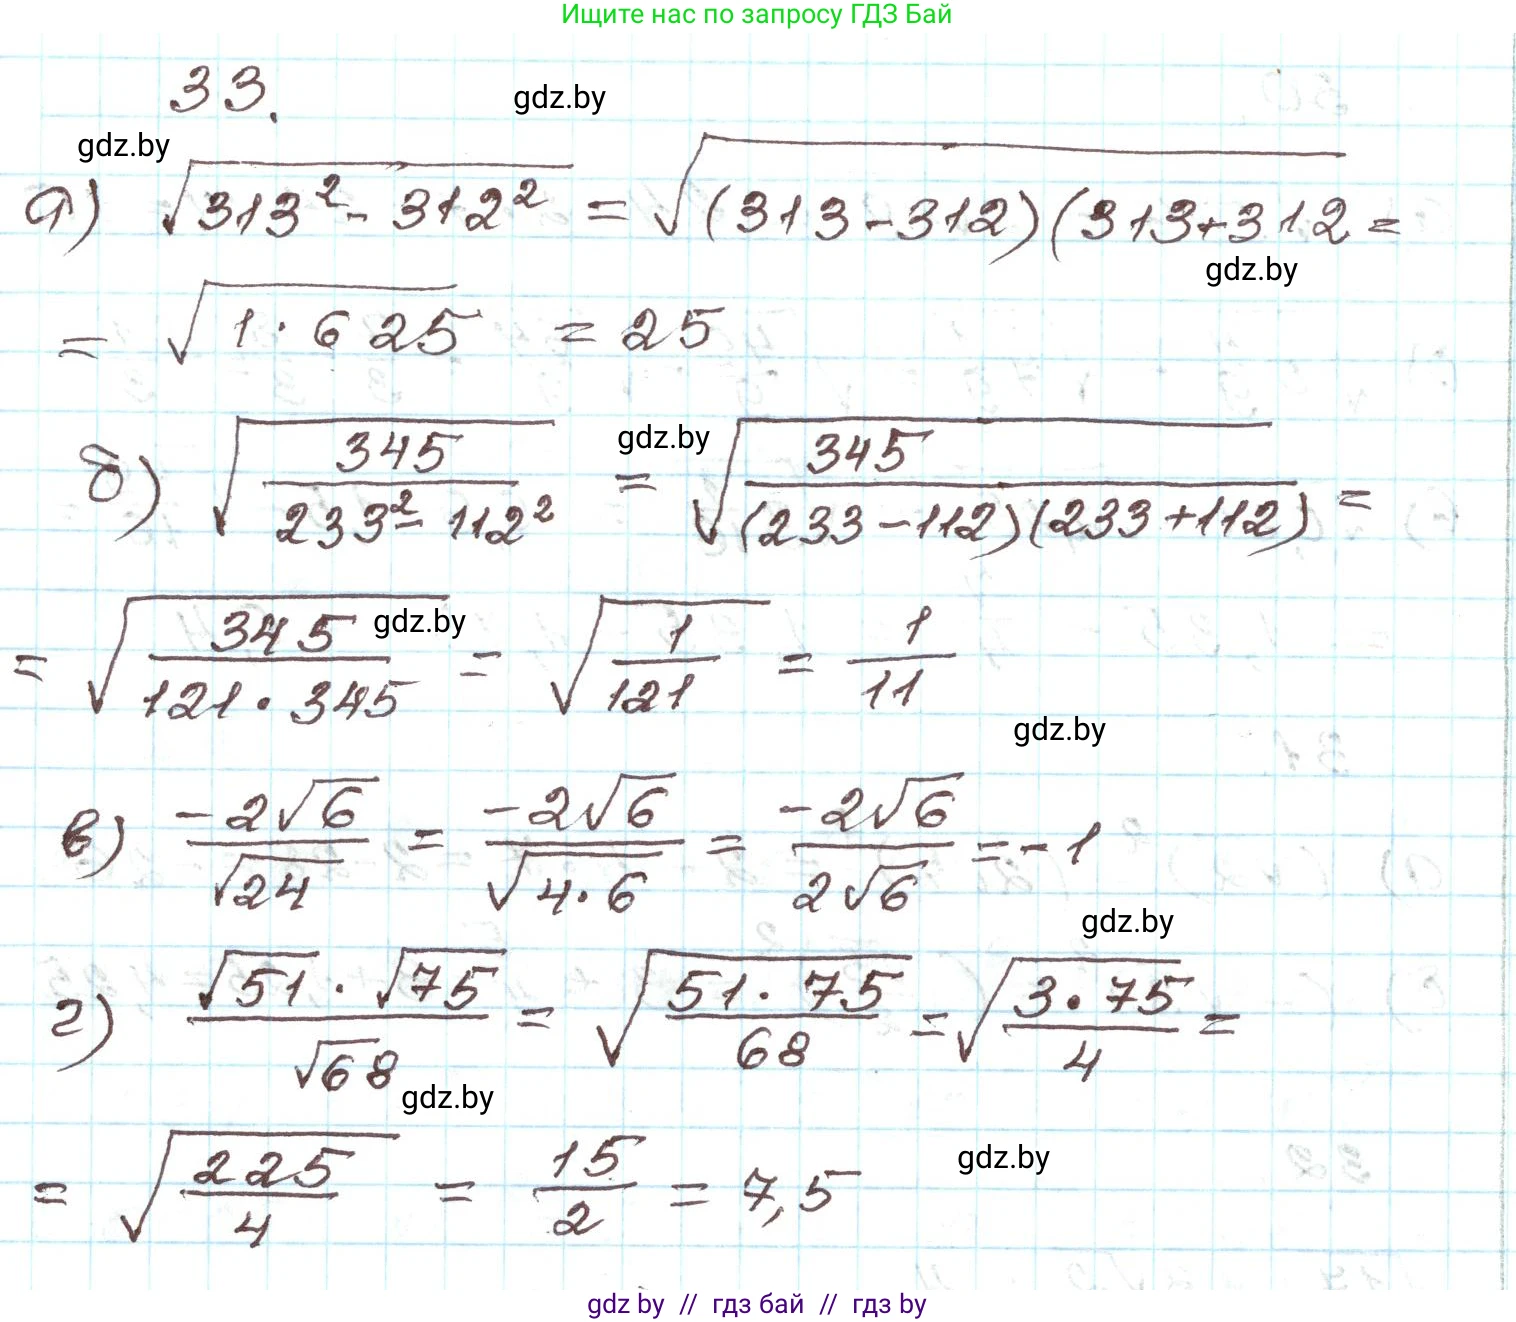 Ищите нас по запросу ГДЗ Бай
33.
gdz.by
gdz.by
а) √(313² - 312²) = √((313-312)(313+312 =
gdz.by
= √(1·625) = 25
б) √(345/(233² - 112²)) = √(345/((233-112)(233+112))) =
gdz.by
= √(345/(121·345)) = √(1/121) = 1/11
gdz.by
gdz.by
в) -2√6/√24 = -2√6/√(4·6) = -2√6/(2√6) = -1
gdz.by
г) √51·√75/√68 = √(51·75/68) = √(3·75/4) =
gdz.by
= √(225/4) = 15/2 = 7,5
gdz.by
gdz by // гдз бай // гдз by